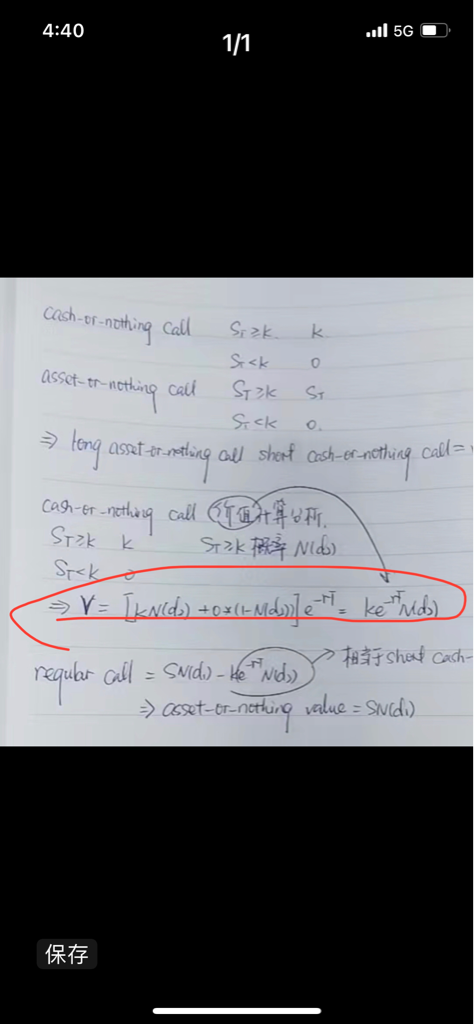 4:40
5G
1/1
cash-or-nothing call Sₜ≥k k
Sₜ<k 0
asset-or-nothing call Sₜ≥k Sₜ
Sₜ<k 0.
⇒ long asset-or-nothing call short cash-or-nothing call =
cash-or-nothing call 价值计算分析.
Sₜ≥k k Sₜ≥k 概率 N(d₂)
Sₜ<k 0
⇒ V = [kN(d₂) + 0*(1-N(d₂))]e^-rT = ke^-rT N(d₂)
regular call = SN(d₁) - ke^-rT N(d₂) 相当于 short cash-
⇒ asset-or-nothing value = SN(d₁)
保存